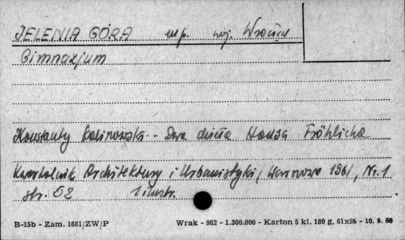 JELENIA GÓRA mp. woj. Wrocław
Gimnazjum
Konstanty Kalinowski - Dwa dzieła Hansa Fröhlicha
Kwartalnik Architektury i Urbanistyki, Warszawa 1961, Nr. 1
str. 52 1 ilustr.
B-15b - Zam. 1661/ZW/P Wrak - 962 - 1.300.000 - Karton 5 kl. 180 g, 61x86 - 10. 9. 60